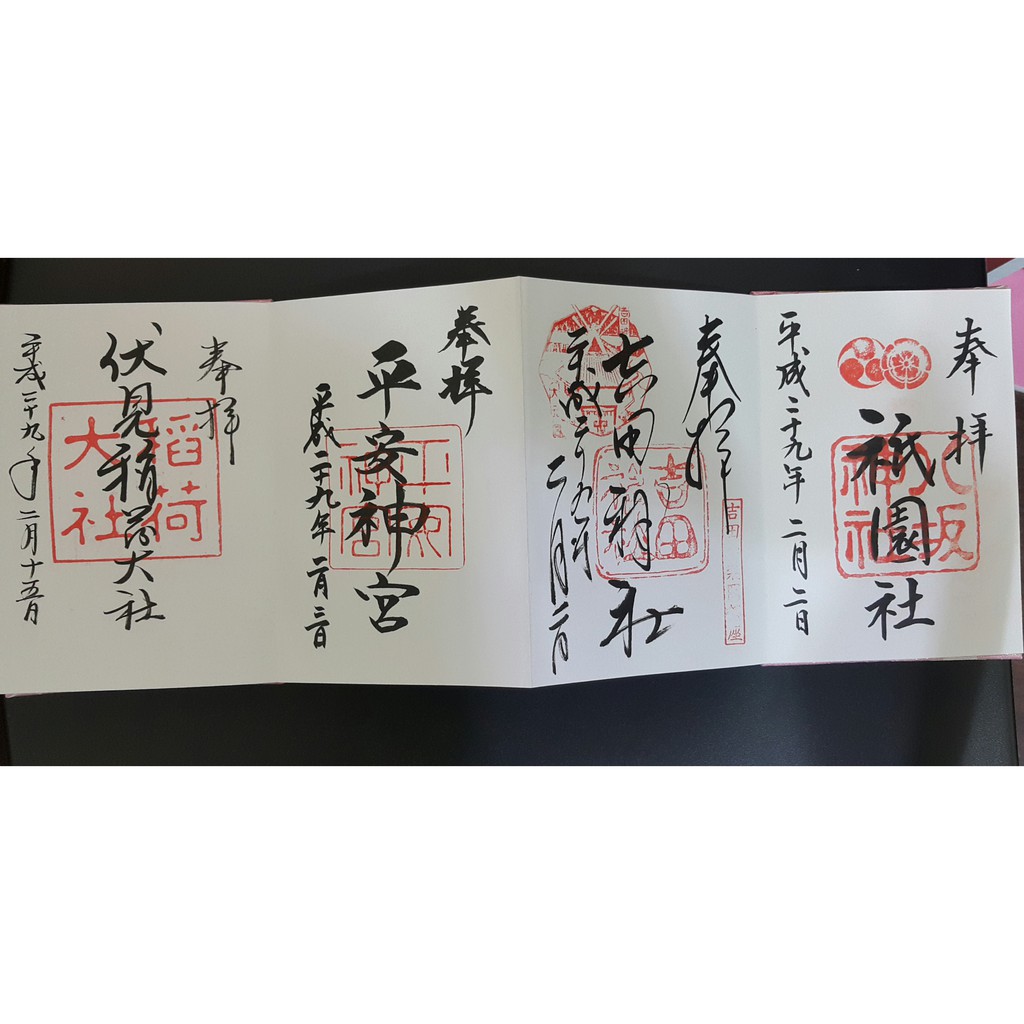 奉拝
祇園社
八坂神社
平成二十九年二月二日
奉拝
吉田神社
吉田
平成二十九年二月二日
奉拝
平安神宮
平安神宮
平成二十九年二月三日
奉拝
伏見稲荷大社
稲荷大社
平成二十九年二月十五日